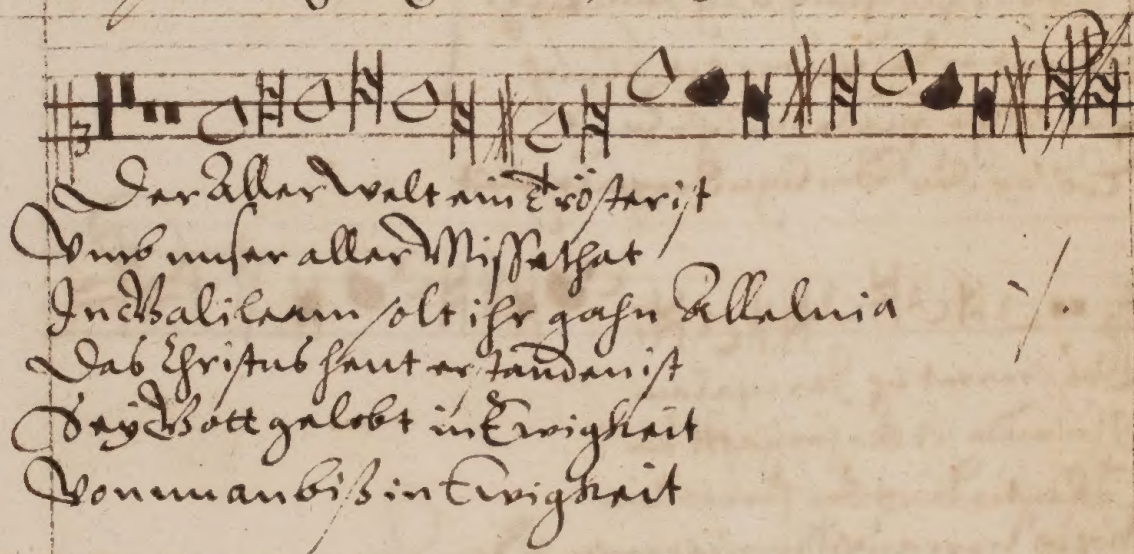 Der Aller Welt ein Tröster ist
Vmb unser aller Missethat
In Galileam solt ihr gahn Alleluia
Das Christus heut erstanden ist
Sey Gott gelobt in Ewigkeit
Von nun an biß in Ewigkeit